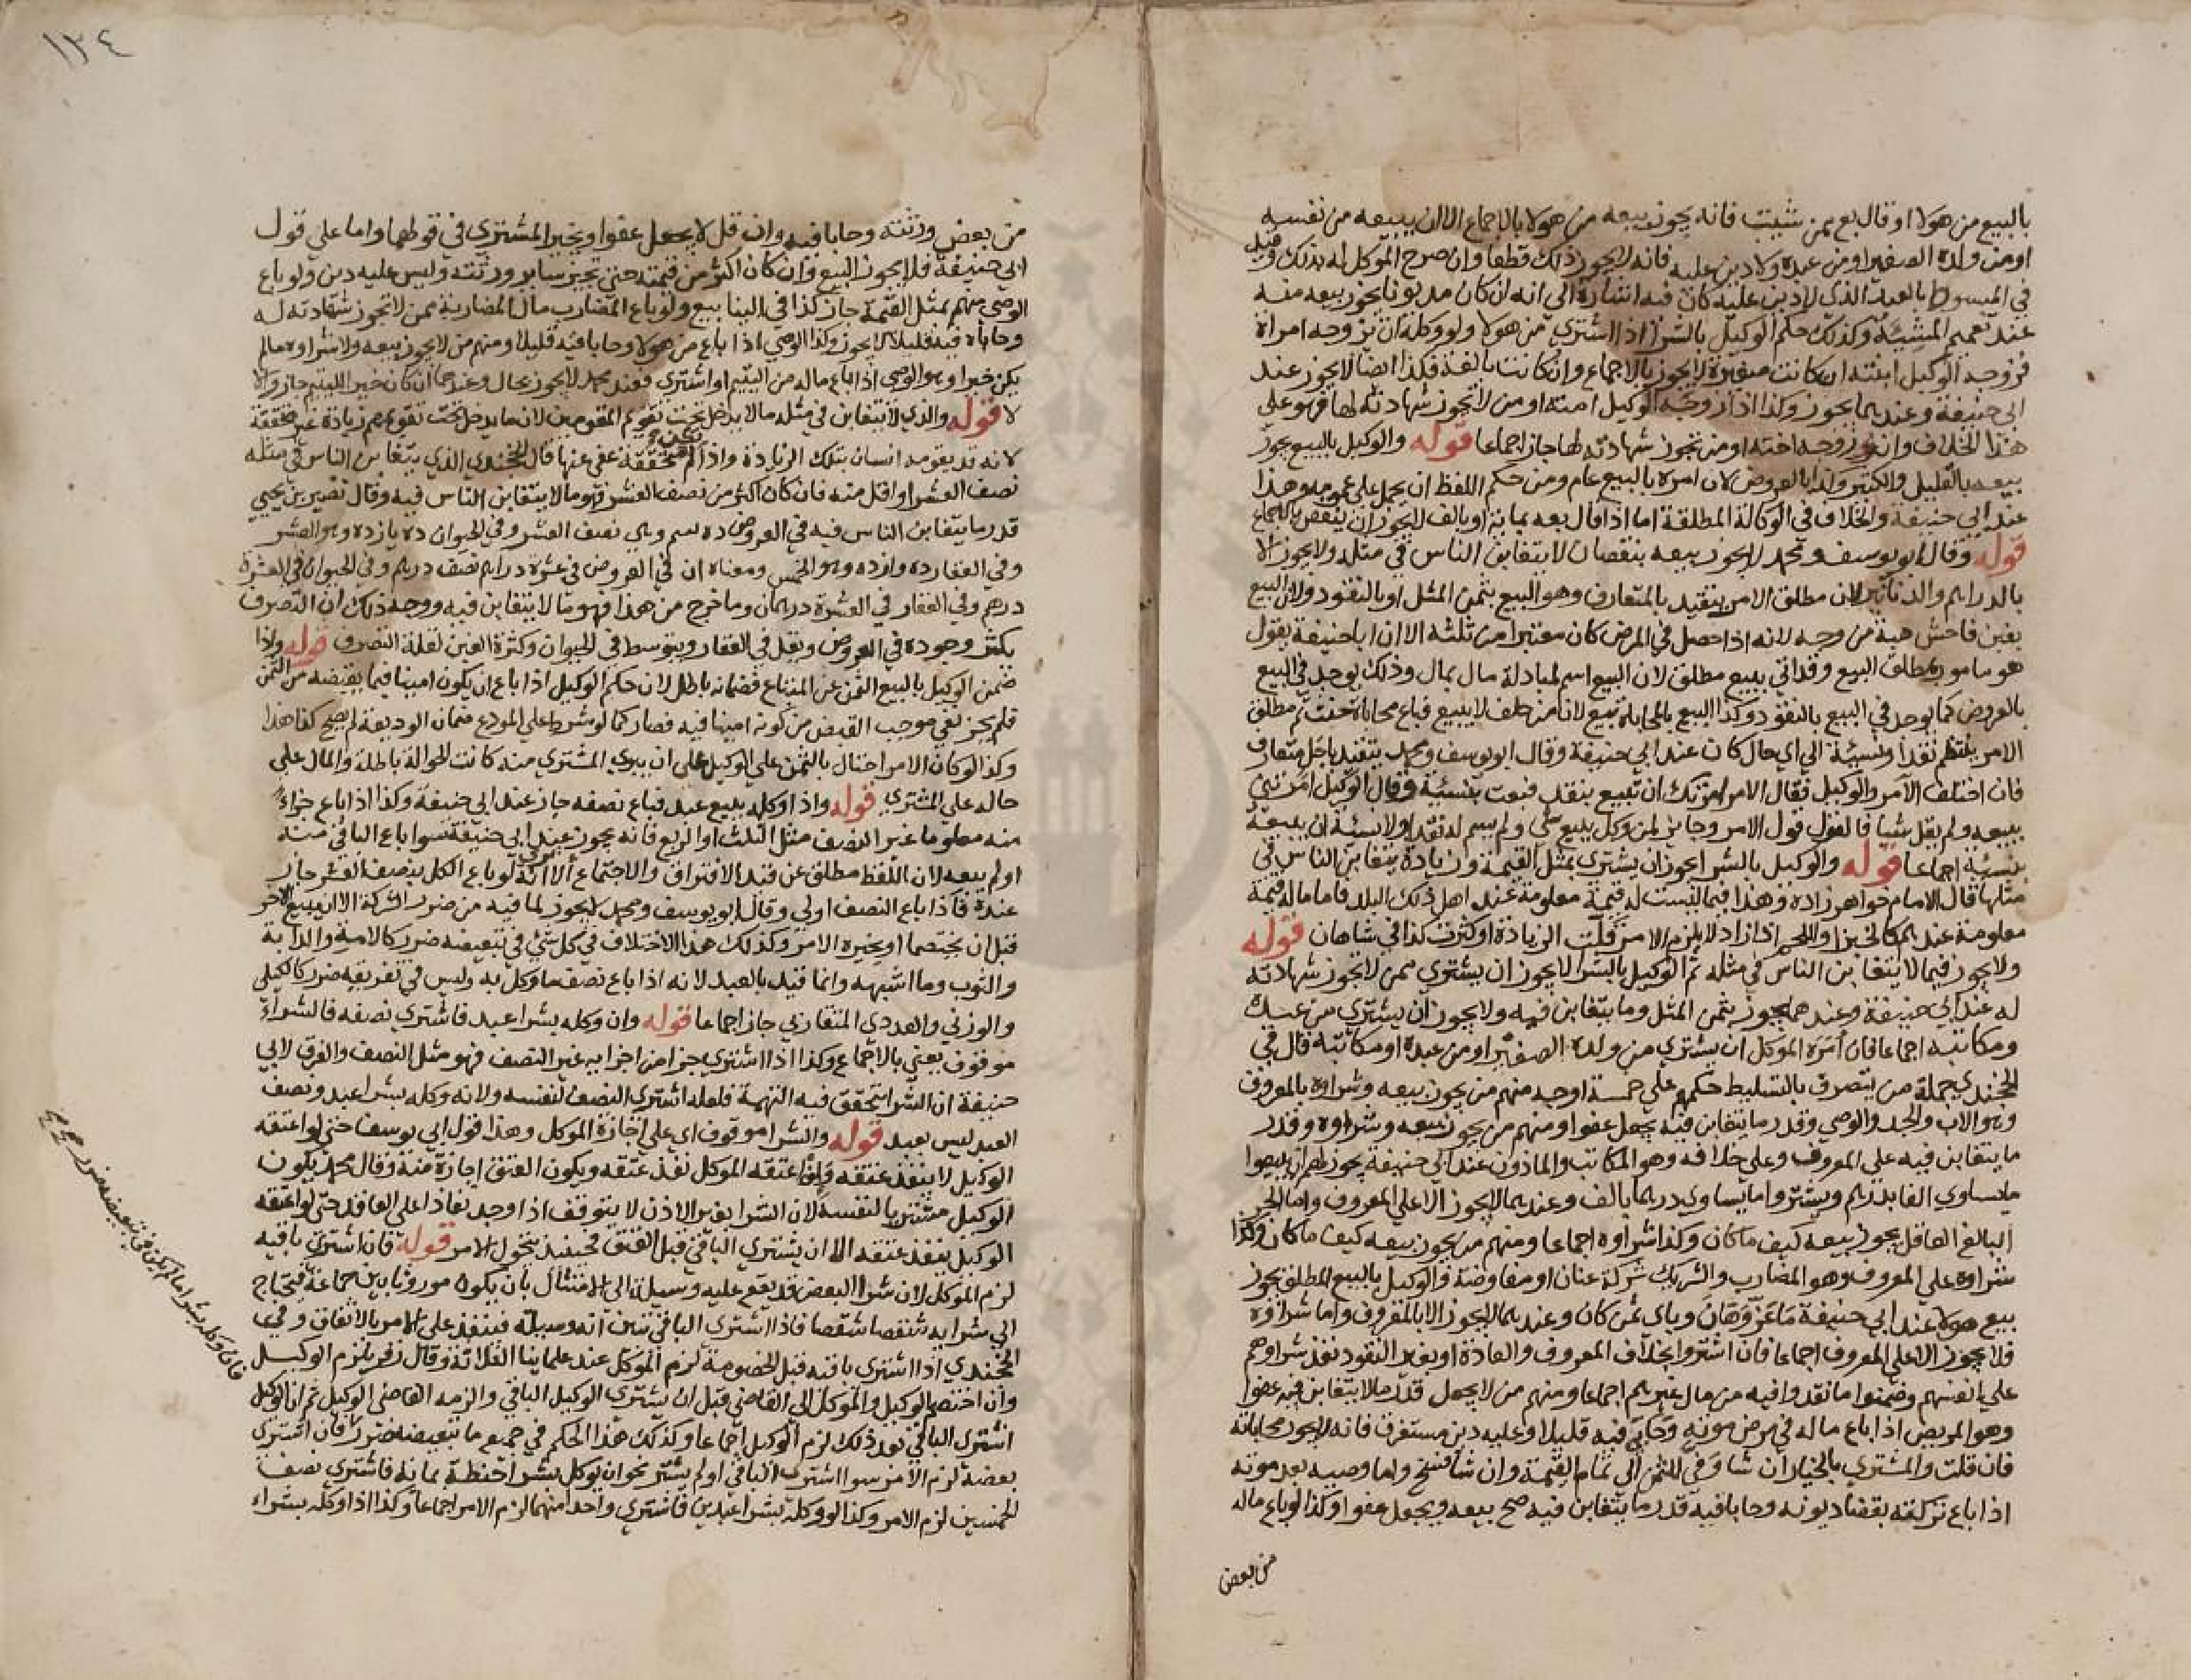 بالبيع من هولا او قال بع ممن شيت فانه يجوز بيعه من هولا بالاجماع الا ان يبيعه من نفسه
او من ولده الصغير او من عبده ولا دين عليه فانه لا يجوز ذلك قطعا وان صرح الموكل له بذلك وقيل
في المبسوط بالعبد الذي لا دين عليه كان فيه اشارة الى انه ان كان مديونا يجوز بيعه منه
عند تعميم المشيئة وكذلك حكم الوكيل بالشرا اذا اشترى من هولا ولو وكله ان يزوجه امراة
فزوجه الوكيل ابنته ان كانت صغيرة لا يجوز بالاجماع وان كانت بالغة فكذا ايضا لا يجوز عند
ابي حنيفة وعندهما يجوز وكذا اذا زوجه الوكيل امته او من لا تجوز شهادته لها فهو على
هذا الخلاف وان زوجه اخته او من تجوز شهادته لها جاز اجماعا قوله والوكيل بالبيع يجوز
بيعه بالقليل والكثير وكذا بالعروض لان امره بالبيع عام ومن حكم اللفظ ان يحمل على عمومه وهذا
عند ابي حنيفة والخلاف في الوكالة المطلقة اما اذا قال بعه بماية او بالف لا يجوز ان ينقص بالاجماع
قوله وقال ابو يوسف ومحمد لا يجوز بيعه بنقصان لا يتغابن الناس في مثله ولا يجوز الا
بالدراهم والدنانير لان مطلق الامر يتقيد بالمتعارف وهو البيع بثمن المثل او بالنقود ولان البيع
بغبن فاحش هبة من وجه لانه اذا حصل في المرض كان معتبرا من ثلثه الا ان ابا حنيفة يقول
هو مامور بمطلق البيع وقد اتي ببيع مطلق لان البيع اسم لمبادلة مال بمال وذلك يوجد في البيع
بالعروض كما يوجد في البيع بالنقود وكذا البيع بالمحاباة بيع لان من حلف لا يبيع فباع محاباة حنث ثم مطلق
الامر ينتظم نقدا ونسيئة الى اي حال كان عند ابي حنيفة وقال ابو يوسف ومحمد يتقيد باجل متعارف
فان اختلف الآمر والوكيل فقال الامر امرتك ان تبيع بنقد فبعت بنسيئة وقال الوكيل امرتني
ببيعه ولم يقل شيا فالقول قول الامر وجايز لمن وكل ببيع شي ولم يسم له نقدا ولا نسئة ان يبيعه
بنسيئة اجماعا قوله والوكيل بالشرا يجوز ان يشتري بمثل القيمة وزيادة يتغابن الناس في
مثلها قال الامام خواهر زاده وهذا فيما ليست له قيمة معلومة عند اهل ذلك البلد فاما ما له قيمة
معلومة عندهم كالخبز واللحم اذا زاد لا يلزم الامر قلت الزيادة او كثرت كذا في شاهان قوله
ولا يجوز فيما لا يتغابن الناس في مثله ثم الوكيل بالشرا لا يجوز ان يشتري ممن لا تجوز شهادته
له عند ابي حنيفة وعندهما يجوز بثمن المثل وما يتغابن فيه ولا يجوز ان يشتري من عبده
ومكاتبه اجماعا فان امره الموكل ان يشتري من ولده الصغير او من عبده او مكاتبه قال في
الخجندي جملة من يتصرف بالتسليط حكمهم على خمسة اوجه منهم من يجوز بيعه وشراوه بالمعروف
وهو الاب والجد والوصي وقدر ما يتغابن فيه يجعل عفوا ومنهم من يجوز بيعه وشراوه وقدر
ما يتغابن فيه على المعروف وعلى خلافه وهو المكاتب والماذون عند ابي حنيفة يجوز لهم ان يبيعوا
ما يساوي الفا بدرهم ويشتروا ما يساوي درهما بالف وعندهما لا يجوز الا على المعروف واما الحر
البالغ العاقل يجوز بيعه كيف ما كان وكذا شراوه اجماعا ومنهم من يجوز بيعه كيف ما كان وكذا
شراوه على المعروف وهو المضارب والشريك شركة عنان او مفاوضة والوكيل بالبيع المطلق يجوز
بيع هولا عند ابي حنيفة ما عز وهان وباي ثمن كان وعندهما لا يجوز الا بالمعروف واما شراوه
فلا يجوز الا على المعروف اجماعا فان اشتروا بخلاف المعروف والعادة او بغير النقود نفذ شراوهم
على انفسهم وضمنوا ما نقدوا فيه من مال غيرهم اجماعا ومنهم من لا يجعل قدر ما لا يتغابن فيه عفوا
وهو المريض اذا باع ماله في مرض موته وحابى فيه قليلا وعليه دين مستغرق فانه لا يجوز محاباته
فان قلت والمشتري بالخيار ان شا وفى الثمن الى تمام القيمة وان شا فسخ واما وصيه بعد موته
اذا باع تركته بقضا ديونه وحابا فيه قدر ما يتغابن فيه صح بيعه ويجعل عفوا وكذا لو باع ماله
من بعض
١٣٤
من بعض ورثته وحابا فيه وان قل لا يجعل عفوا ويخير المشتري في قولهما واما على قول
ابي حنيفة فلا يجوز البيع وان كان اكثر من قيمته حتى يجيز ساير ورثته وليس عليه دين ولو باع
الوصي منهم بمثل القيمة جاز كذا في الينابيع ولو باع المضارب مال المضاربة ممن لا تجوز شهادته له
وحاباه فيه قليلا لا يجوز وكذا الوصي اذا باع من هولا وحابا فيه قليلا ومنهم من لا يجوز بيعه ولا شراوه ما لم
يكن خيرا وهو الوصي اذا باع ماله من اليتيم او اشترى فعند محمد لا يجوز بحال وعندهما ان كان خيرا لليتيم جاز والا
لا قوله والذي لا يتغابن في مثله ما لا يدخل تحت تقويم المقومين لان ما يدخل تحت تقويمهم زيادة غير محققة
لانه قد يقومه انسان بتلك الزيادة واذا لم تكن محققة عفي عنها قال الخجندي الذي يتغابن الناس في مثله
نصف العشر او اقل منه فان كان اكثر من نصف العشر فهو ما لا يتغابن الناس فيه وقال نصير بن يحيي
قدر ما يتغابن الناس فيه في العروض ده نيم وهي نصف العشر وفي الحيوان ده يازده وهو العشر
وفي العقار ده دوازده وهو الخمس ومعناه ان في العروض في عشرة دراهم نصف درهم وفي الحيوان في العشرة
درهم وفي العقار في العشرة درهمان وما خرج من هذا فهو ما لا يتغابن فيه ووجه ذلك ان التصرف
يكثر وجوده في العروض ويقل في العقار ويتوسط في الحيوان وكثرة الغبن لقلة التصرف قوله واذا
ضمن الوكيل بالبيع الثمن عن المبتاع فضمانه باطل لان حكم الوكيل اذا باع ان يكون امينا فيما يقبضه من الثمن
فلم يجز نفي موجب القبض من كونه امينا فيه فصار كما لو شرط على المودع ضمان الوديعة لا يصح كذا هذا
وكذا لو كان الامر احتال بالثمن على الوكيل على ان يبري المشتري منه كانت الحوالة باطلة والمال على
حاله على المشتري قوله واذا وكله ببيع عبد فباع نصفه جاز عند ابي حنيفة وكذا اذا باع جزاء
منه معلوما غير النصف مثل الثلث او الربع فانه يجوز عند ابي حنيفة سوا باع الباقي منه
او لم يبعه لان اللفظ مطلق عن قيد الافتراق والاجتماع الا ترى انه لو باع الكل بنصف الثمن جاز
عنده فاذا باع النصف اولى وقال ابو يوسف ومحمد لا يجوز لما فيه من ضرر الشركة الا ان يبيع الاخر
قبل ان يختصما او يخيره الامر وكذلك هذا الاختلاف في كل شئ في تبعيضه ضرر كالامة والدابة
والثوب وما اشبهه وانما قيد بالعبد لانه اذا باع نصف ما وكل به وليس في تفريقه ضرر كالكيلي
والوزني والعددي المتقارب جاز اجماعا قوله وان وكله بشرا عبد فاشترى نصفه فالشراء
موقوف يعني بالاجماع وكذا اذا اشترى جزا من اجزايه غير النصف فهو مثل النصف والفرق لابي
حنيفة ان الشرا تتحقق فيه التهمة فلعله اشترى النصف لنفسه ولانه وكله بشرا عبد ونصف
العبد ليس بعبد قوله والشرا موقوف اي على اجازة الموكل وهذا قول ابي يوسف حتى لو اعتقه
الوكيل لا ينفذ عتقه ولو اعتقه الموكل نفذ عتقه ويكون العتق اجازة منه وقال محمد يكون
الوكيل مشتريا لنفسه لان الشرا بغير الاذن لا يتوقف اذا وجد نفاذا على العاقد حتى لو اعتقه
الوكيل ينفذ عتقه الا ان يشتري الباقي قبل العتق فحينئذ يتحول للامر قوله فان اشترى باقيه
لزم الموكل لان شرا البعض قد يقع عليه وسيلة الى الامتثال بان يكون موروثا بين جماعة فيحتاج
الى شرايه شقصا شقصا فاذا اشترى الباقي تبين انه وسيلة فينفذ على الامر بالاتفاق وفي
الخجندي اذا اشترى باقيه قبل الخصومة لزم الموكل عند علماينا الثلاثة وقال زفر يلزم الوكيل
وان اختصم الوكيل والموكل الى القاضي قبل ان يشتري الوكيل الباقي والزمه القاضي الوكيل ثم ان الوكيل
اشترى الباقي بعد ذلك لزم الوكيل اجماعا وكذلك هذا الحكم في جميع ما تبعيضه ضرر فان اشترى
بعضه لزم الامر سوا اشترى الباقي او لم يشتر نحو ان يوكل بشرا حنطة بمائة فاشترى نصف
الخمسين لزم الامر وكذا لو وكله بشرا عبدين فاشترى واحدا منهما لزم الامر اجماعا وكذا اذا وكله بشراء
فان وكله بشرا ما لم يكن في تبعيضه ضرر صح صح